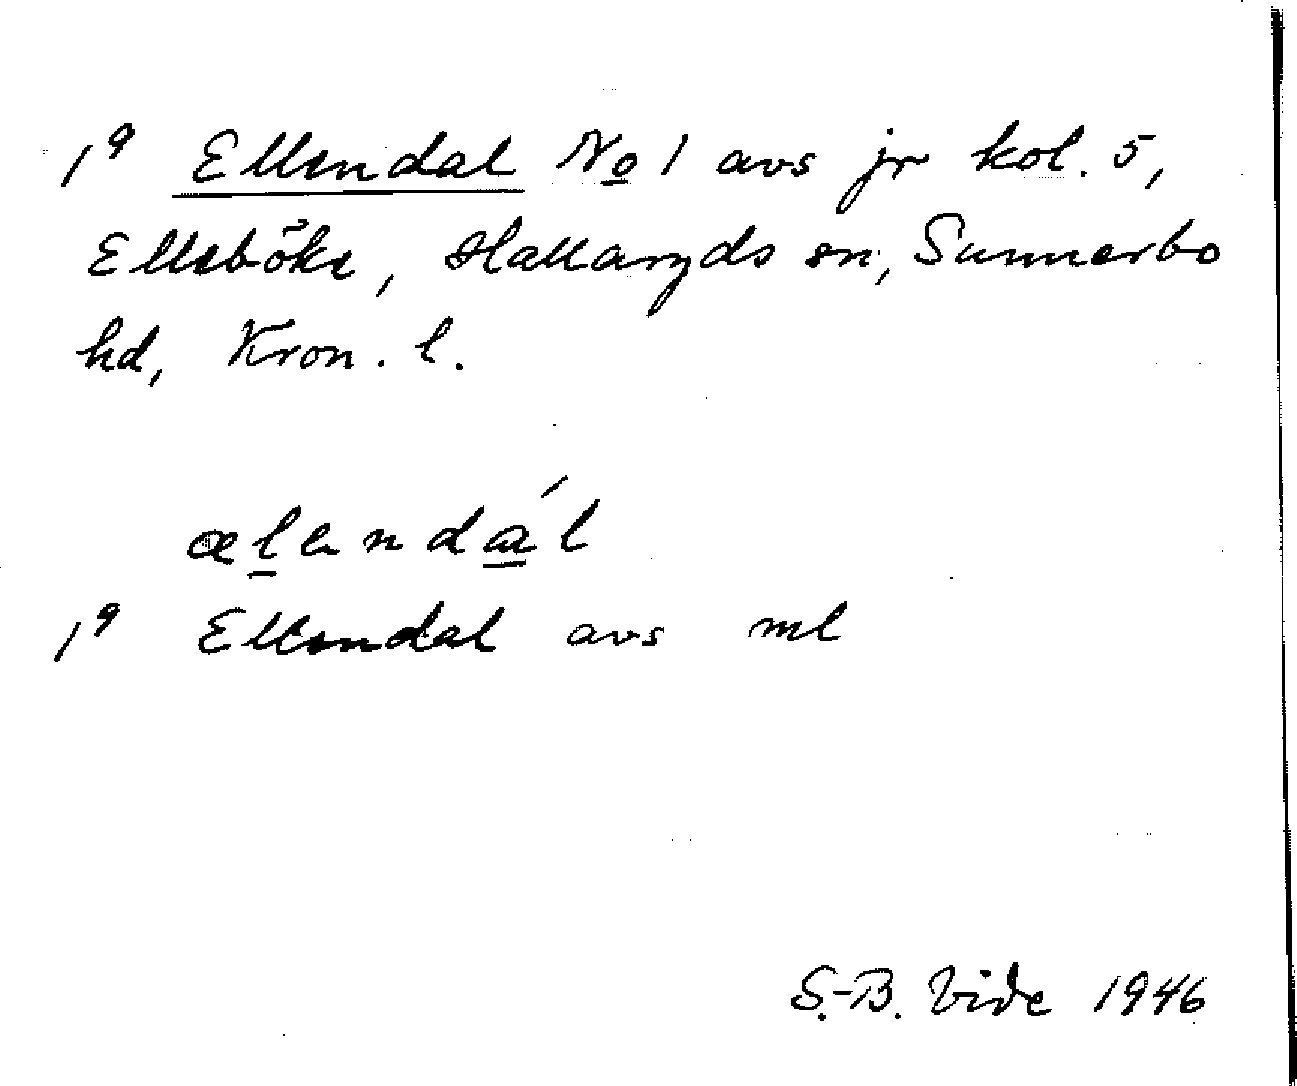 1⁹ Ellendal No 1 avs jr kol. 5,
Elleböke, Hallaryds sn, Sunnerbo
hd, Kron. l.
ælendál
1⁹ Ellendal avs ml
S.-B. Vide 1946